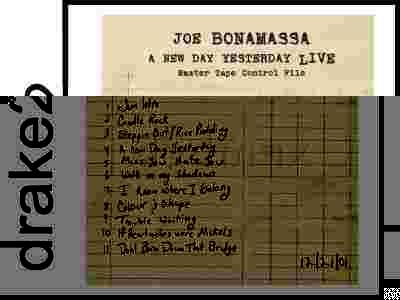 JOE BONAMASSA
A NEW DAY YESTERDAY LIVE
Master Tape Control File
1 Jam Intro
2 Cradle Rock
3 Steppin Out/Rice Pudding
4 A New Day Yesterday
5 Miss You, Hate You
6 Walk in my Shadows
7 I Know Where I Belong
8 Colour & Shape
9 Trouble Waiting
10 If Heartaches were Nickels
11 Dont Burn Down That Bridge
12/21/01
drake